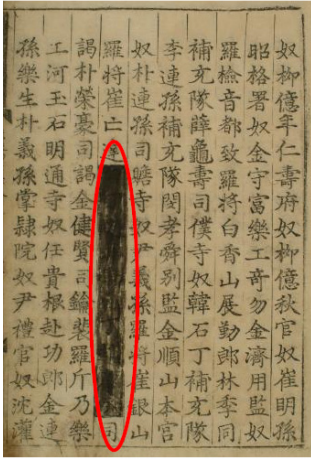 奴柳億年仁壽府奴柳億秋官奴崔明孫
昭格署奴金守富樂工奇勿金濟用監奴
羅檢音都致羅將白香山展勤郎林季同
補充隊薛龜壽司僕寺奴韓石丁補充隊
李連孫補充隊閔孝舜別監金順山本宮
奴朴連孫司贍寺奴尹義孫羅將崔銀山
羅將崔亡 司
謁朴榮豪司謁金健賢司鑰裴羅斤乃樂
工河玉石明通寺奴任貴根赴功郎金連
孫樂生朴義孫掌隷院奴尹禮官奴沈灌